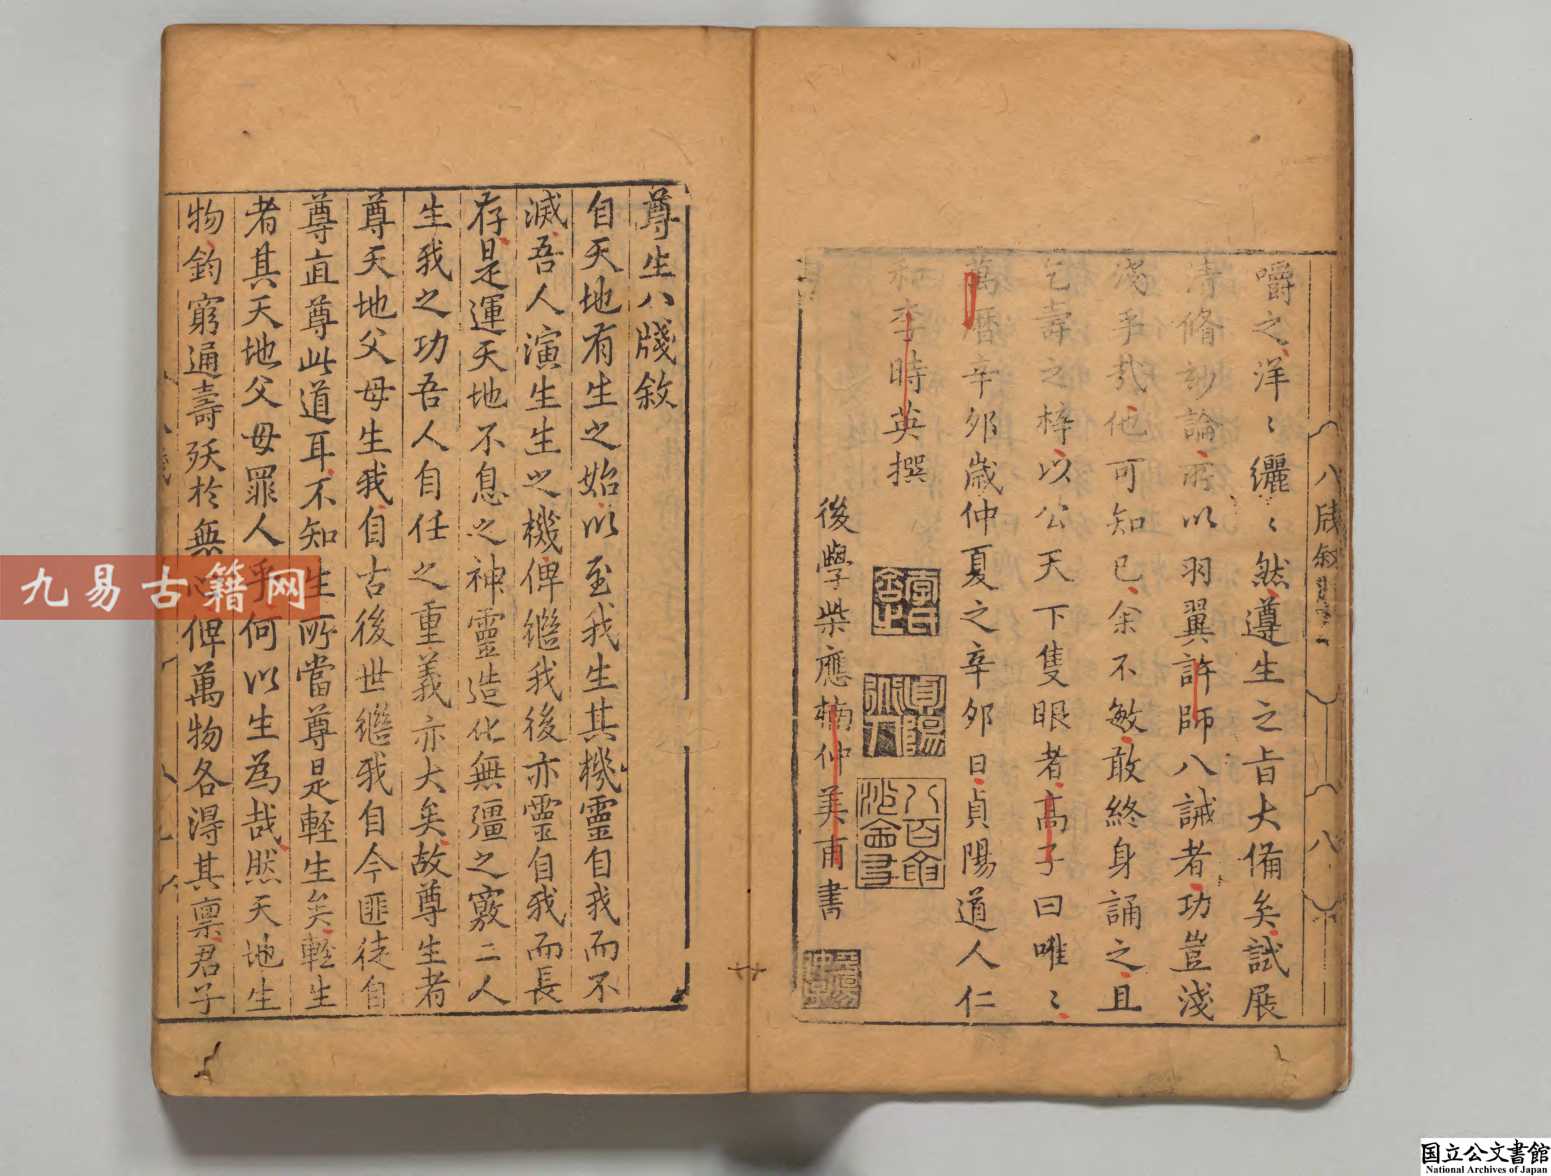 嚼之洋〻纚〻然遵生之旨大備矣試展
清脩玅論所以羽翼許師八誡者功豈淺
淺乎哉他可知已余不敏敢終身誦之且
乞壽之梓以公天下隻眼者高子曰唯〻
萬曆辛夘歲仲夏之辛夘日貞陽道人仁
和李時英撰
後學柴應楠仲美甫書
八牋敘
八
尊生八牋敘
自天地有生之始以至我生其機靈自我而不
滅吾人演生生之機俾繼我後亦靈自我而長
存是運天地不息之神靈造化無彊之竅二人
生我之功吾人自任之重義亦大矣故尊生者
尊天地父母生我自古後世繼我自今匪徒自
尊直尊此道耳不知生所當尊是輕生矣輕生
者其天地父母罪人乎何以生為哉然天地生
物鈞窮通壽殀於無心俾萬物各淂其禀君子
九易古籍网
国立公文書館
National Archives of Japan